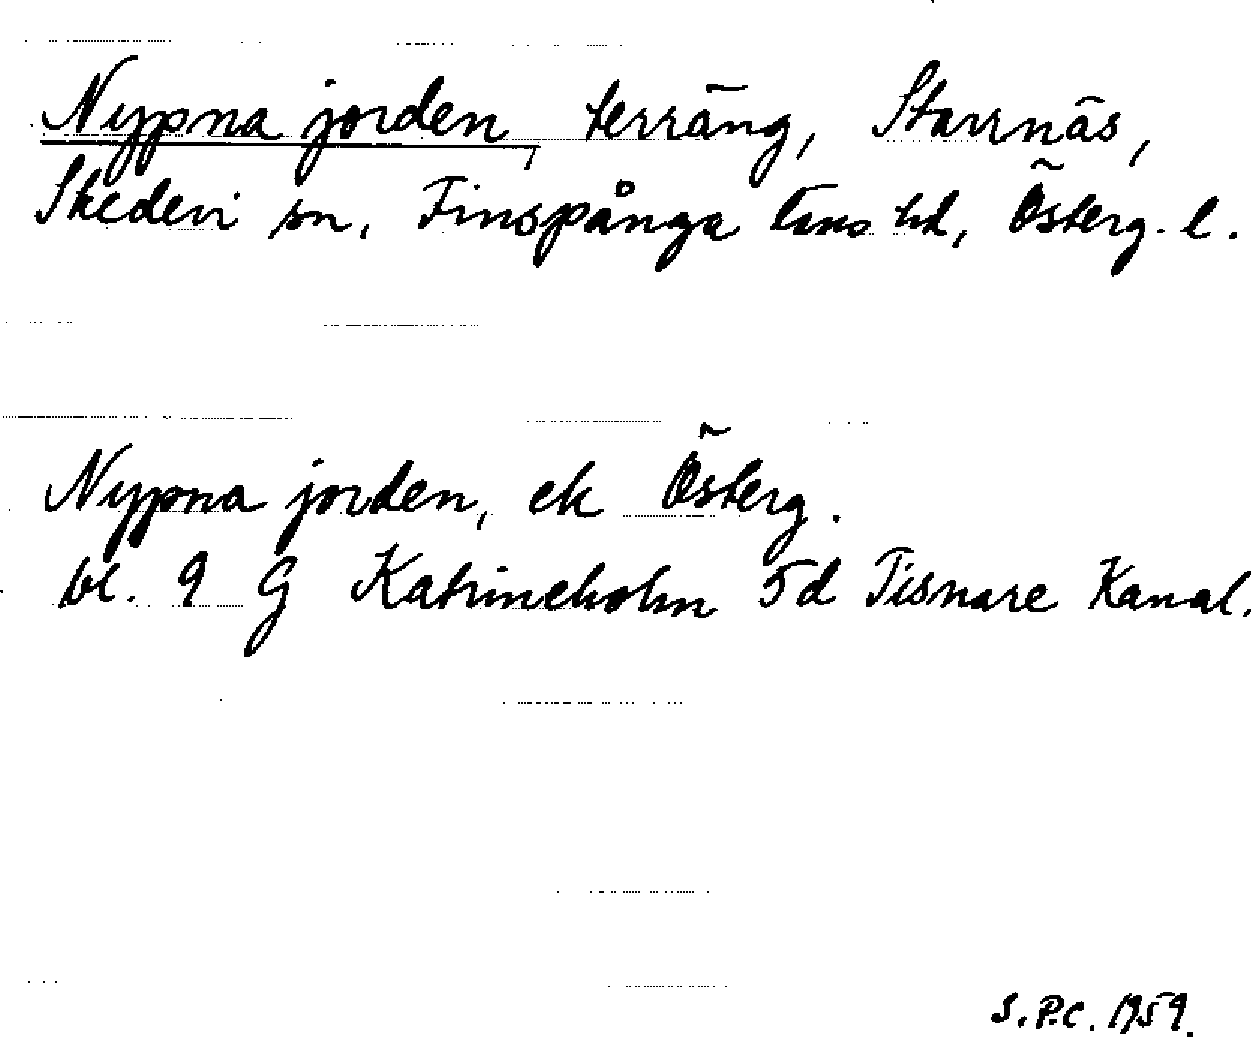 Nyppna jorden, terräng, Starrnäs,
Skedevi sn, Finspånga läns hd, Österg. l.
Nyppna jorden, ek Österg.
bl. 9 G Katrineholm 5 d Tisnare Kanal.
S.P.C. 1959.